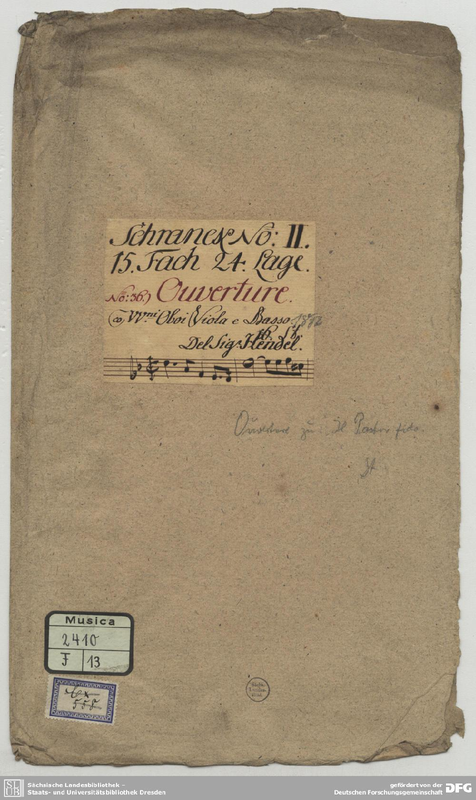 Schranck No: II.
15. Fach 24. Lage.
No: 36.) Ouverture.
VVni Oboi Viola e Basso
16 t.
Del Sigr Hendel.
Ouverture zu: Il Pastor fido.
Musica
2410
F 13
Sächsische Landesbibliothek -
Staats- und Universitätsbibliothek Dresden
gefördert von der
Deutschen Forschungsgemeinschaft
DFG